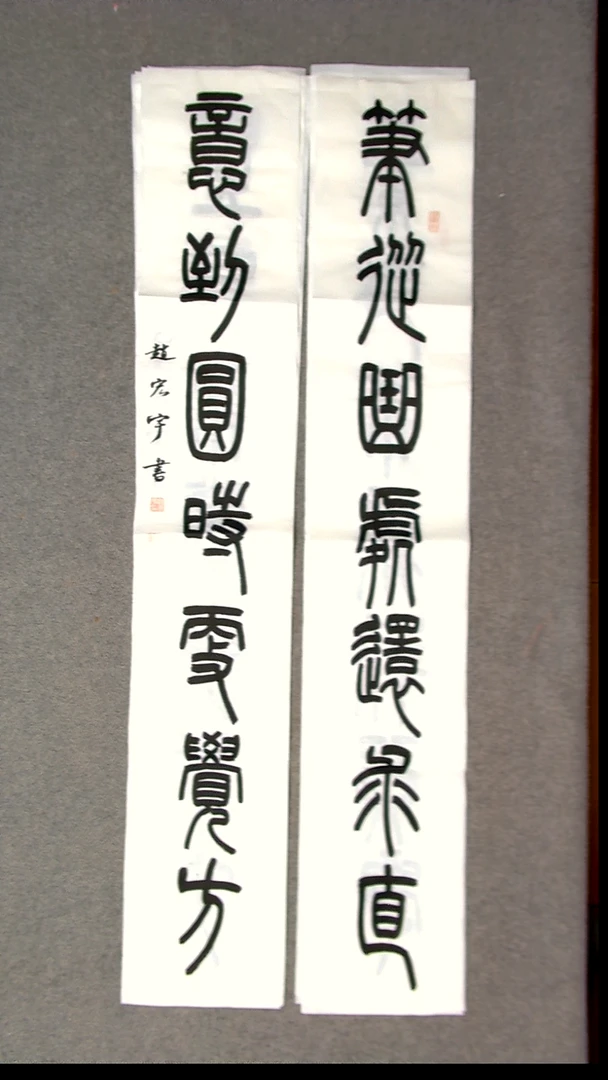 筆從曲處還求直
意到圓時更覺方
趙宏宇書